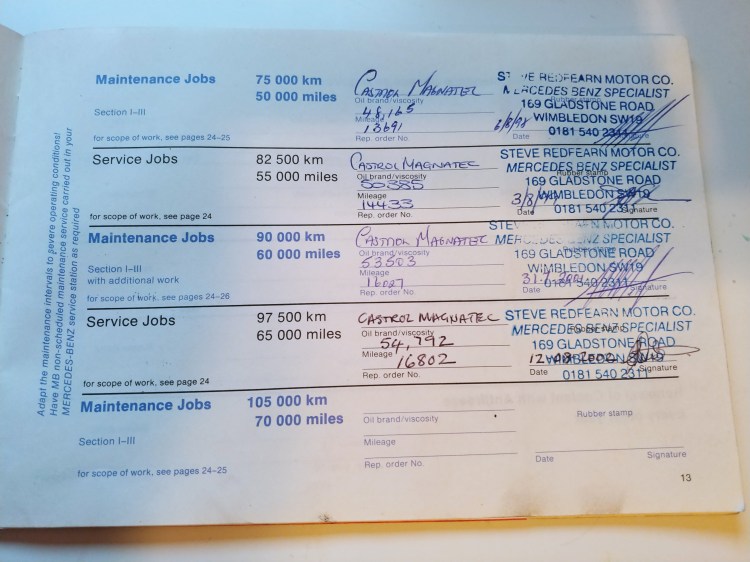 Adapt the maintenance intervals to severe operating conditions!
Have MB non-scheduled maintenance service carried out in your
MERCEDES-BENZ service station as required
Maintenance Jobs 75 000 km
50 000 miles
Section I–III
for scope of work, see pages 24–25
CASTROL MAGNATEC
Oil brand/viscosity
48,165
Mileage
13691
Rep. order No.
STEVE REDFEARN MOTOR CO.
MERCEDES BENZ SPECIALIST
Rubber stamp
169 GLADSTONE ROAD
WIMBLEDON SW19
0181 540 2311
6/8/98
Date
Service Jobs 82 500 km
55 000 miles
for scope of work, see page 24
CASTROL MAGNATEC
Oil brand/viscosity
50385
Mileage
14433
Rep. order No.
STEVE REDFEARN MOTOR CO.
MERCEDES BENZ SPECIALIST
Rubber stamp
169 GLADSTONE ROAD
WIMBLEDON SW19
0181 540 2311
3/8/
Date Signature
Maintenance Jobs 90 000 km
60 000 miles
Section I–III
with additional work
for scope of work, see pages 24–26
CASTROL MAGNATEC
Oil brand/viscosity
53503
Mileage
Rep. order No.
STEVE REDFEARN MOTOR CO.
MERCEDES BENZ SPECIALIST
169 GLADSTONE ROAD
WIMBLEDON SW19
0181 540 2311
Date Signature
Service Jobs 97 500 km
65 000 miles
for scope of work, see page 24
CASTROL MAGNATEC
Oil brand/viscosity
54,792
Mileage
16802
Rep. order No.
STEVE REDFEARN MOTOR CO.
MERCEDES BENZ SPECIALIST
Rubber stamp
169 GLADSTONE ROAD
WIMBLEDON SW19
0181 540 2311
Date Signature
Maintenance Jobs 105 000 km
70 000 miles
Section I–III
for scope of work, see pages 24–25
Oil brand/viscosity
Mileage
Rep. order No.
Rubber stamp
Date Signature
13